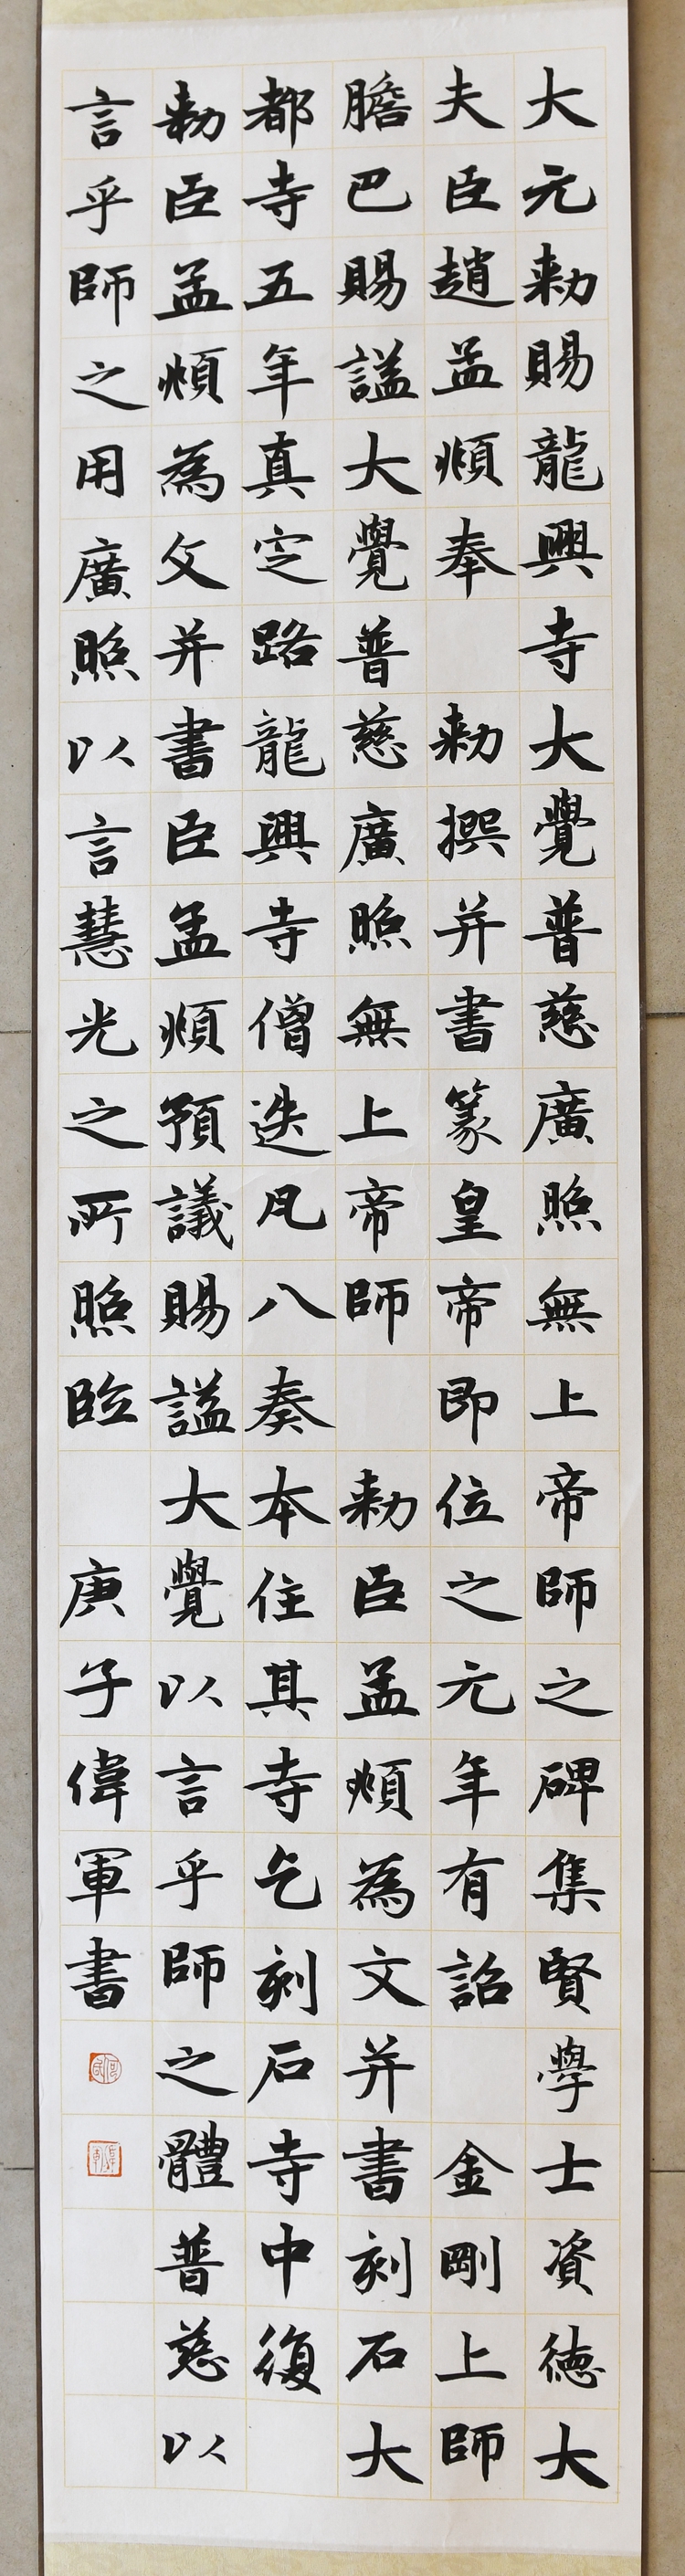 大元勑賜龍興寺大覺普慈廣照無上帝師之碑集賢學士資德大
夫臣趙孟頫奉 勑撰并書篆皇帝即位之元年有詔 金剛上師
膽巴賜謚大覺普慈廣照無上帝師 勑臣孟頫為文并書刻石大
都寺五年真定路龍興寺僧迭凡八奏本住其寺乞刻石寺中復
勑臣孟頫為文并書臣孟頫預議賜謚大覺以言乎師之體普慈以
言乎師之用廣照以言慧光之所照臨 庚子偉軍書